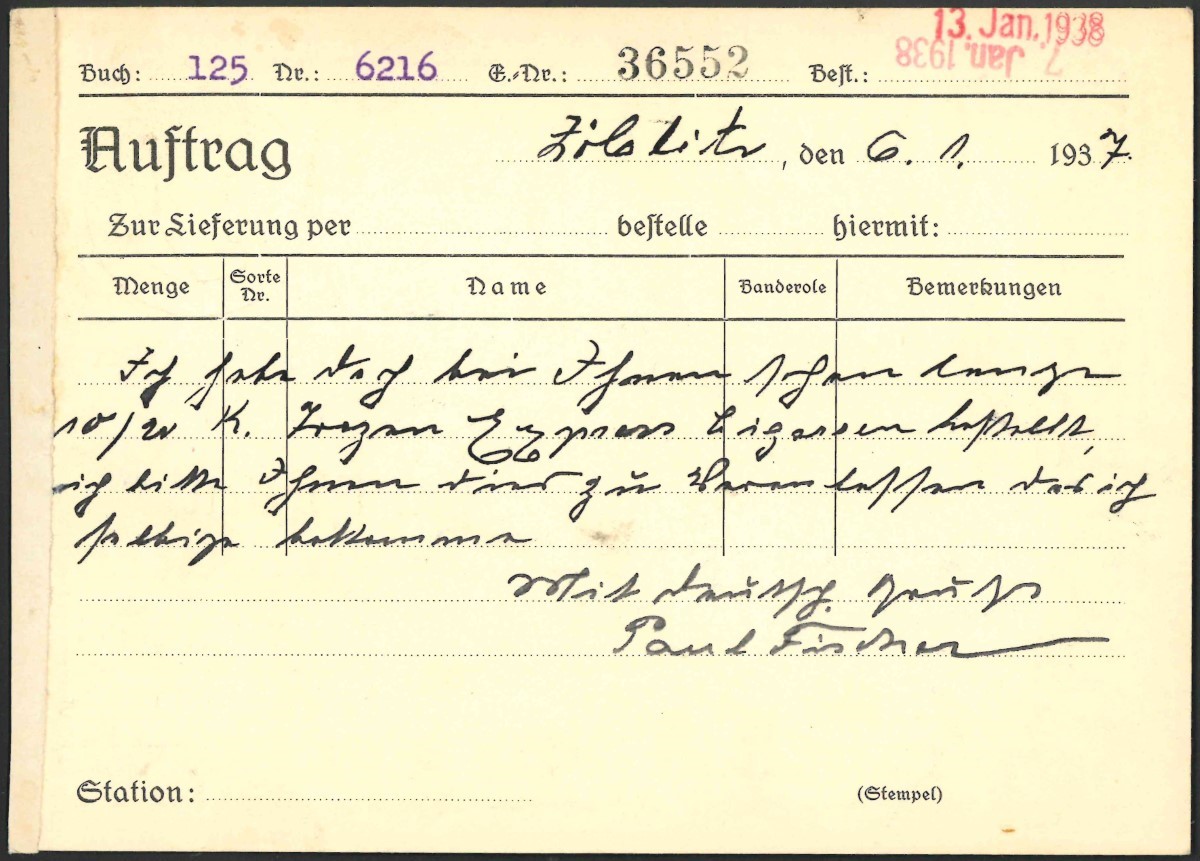 13. Jan. 1938
7. Jan. 1938
Buch: 125 Nr.: 6216 E.-Nr.: 36552 Best.:
Auftrag Zöblitz, den 6. 1. 1937.
Zur Lieferung per bestelle hiermit:
Menge Sorte Nr. Name Banderole Bemerkungen
Ich habe doch bei Ihnen schon lange
10/20 K. Express Cigarren bestellt,
ich bitte Ihnen dies zu Veranlassen das ich
selbige bekomme
Mit deutsch. Gruß
Paul Fischer
Station: (Stempel)